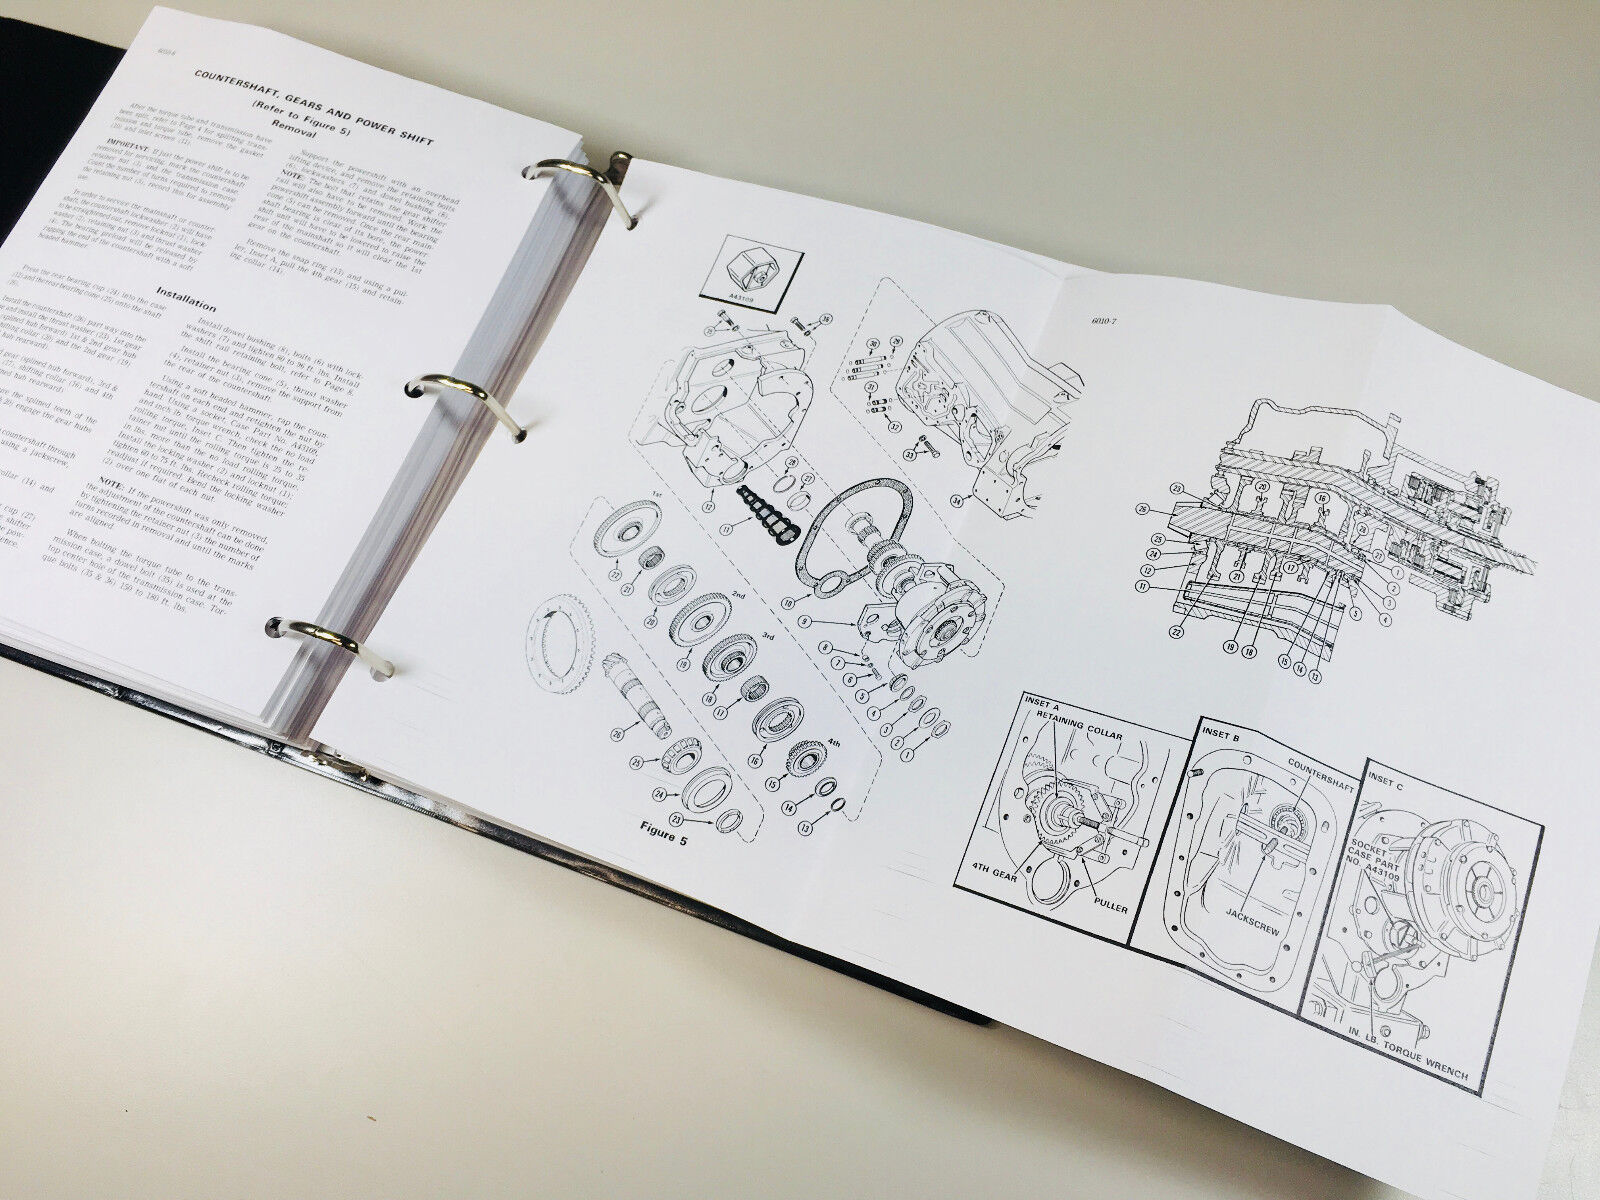 6010-8
COUNTERSHAFT, GEARS AND POWER SHIFT
(Refer to Figure 5)
Removal
After the torque tube and transmission have
been split, refer to Page 4 for splitting trans-
mission and torque tube, remove the gasket
(10) and inlet screen (11).
IMPORTANT: If just the power shift is to be
removed for servicing, mark the countershaft
retainer nut (3) and the transmission case.
Count the number of turns required to remove
the retaining nut (3), record this for assembly
use.
In order to service the mainshaft or counter-
shaft, the countershaft lockwasher (2) will have
to be straightened out, remove locknut (1), lock
washer (2), retaining nut (3) and thrust washer
(4). The bearing preload will be released by
rapping the end of the countershaft with a soft
headed hammer.
Support the powershift with an overhead
lifting device, and remove the retaining bolts
(6), lockwashers (7) and dowel bushing (8).
NOTE: The bolt that retains the gear shifter
rail will also have to be removed. Work the
powershift assembly forward until the bearing
cone (5) can be removed. Once the rear main-
shaft bearing is clear of its bore, the power-
shift unit will have to be lowered to raise the
rear of the mainshaft so it will clear the 1st
gear on the countershaft.
Remove the snap ring (13) and using a pul-
ler, Inset A, pull the 4th gear (15) and retain-
ing collar (14).
Installation
Press the rear bearing cup (24) into the case
(12) and the rear bearing cone (25) onto the shaft
(26).
Install the countershaft (26) part way into the
and install the thrust washer (23), 1st gear
(splined hub forward) 1st & 2nd gear hub
shifting collar (20) and the 2nd gear (19)
hub rearward).
gear (splined hub forward), 3rd &
(17), shifting collar (16) and 4th
hub rearward)
the splined teeth of the
20) engage the gear hubs
countershaft through
using a jackscrew,
collar (14) and
cup (27)
shifter
pow-
ence.
Install dowel bushing (8), bolts (6) with lock-
washers (7) and tighten 80 to 96 ft. lbs. Install
the shift rail retaining bolt, refer to Page 8.
Install the bearing cone (5), thrust washer
(4), retainer nut (3), remove the support from
the rear of the countershaft.
Using a soft headed hammer, rap the coun-
tershaft on each end and retighten the nut by
hand. Using a socket, Case Part No. A43109,
and inch lb. torque wrench, check the no load
rolling torque, Inset C. Then tighten the re-
tainer nut until the rolling torque is 25 to 35
in lbs. more than the no load rolling torque.
Install the locking washer (2) and locknut (1);
tighten 60 to 75 ft. lbs. Recheck rolling torque,
readjust if required. Bend the locking washer
(2) over one flat of each nut.
NOTE: If the powershift was only removed,
the adjustment of the countershaft can be done
by tightening the retainer nut (3) the number of
turns recorded in removal and until the marks
are aligned.
When bolting the torque tube to the trans-
mission case, a dowel bolt (35) is used at the
top center hole of the transmission case. Tor-
que bolts (35 & 36), 150 to 180 ft. lbs.
6010-7
A43109
35 36
30 29
31
32
33
34
28 27
12 11
1st
22
21
20
2nd
19
3rd
18
17
16
4th
15
14
13
10
9
8
7
6
5
4
3
2
1
26
25
24
23
Figure 5
23 20 16
26
25
24
12
11
22
21 17
19 18
15 14 13
29 27 1
2
3
4
5
INSET A
RETAINING COLLAR
4TH GEAR
PULLER
INSET B
COUNTERSHAFT
JACKSCREW
INSET C
SOCKET
CASE PART
NO. A43109
IN. LB. TORQUE WRENCH